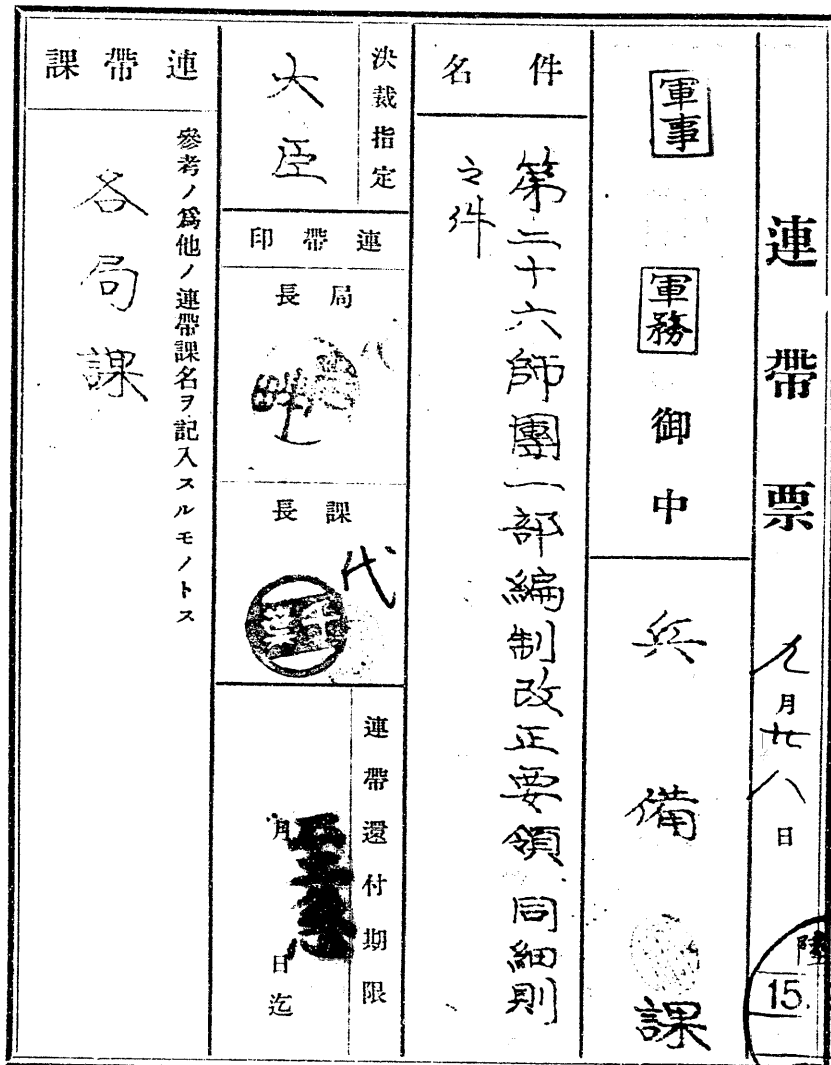 連帶票 九月廿八日
軍事 軍務 御中
兵備課
件名
第二十六師團一部編制改正要領同細則
之件
決裁指定
大臣
連帶印
局長
代
課長
代
連帶還付期限
月 日迄
連帶課
參考ノ爲他ノ連帶課名ヲ記入スルモノトス
各局課
陸
15.